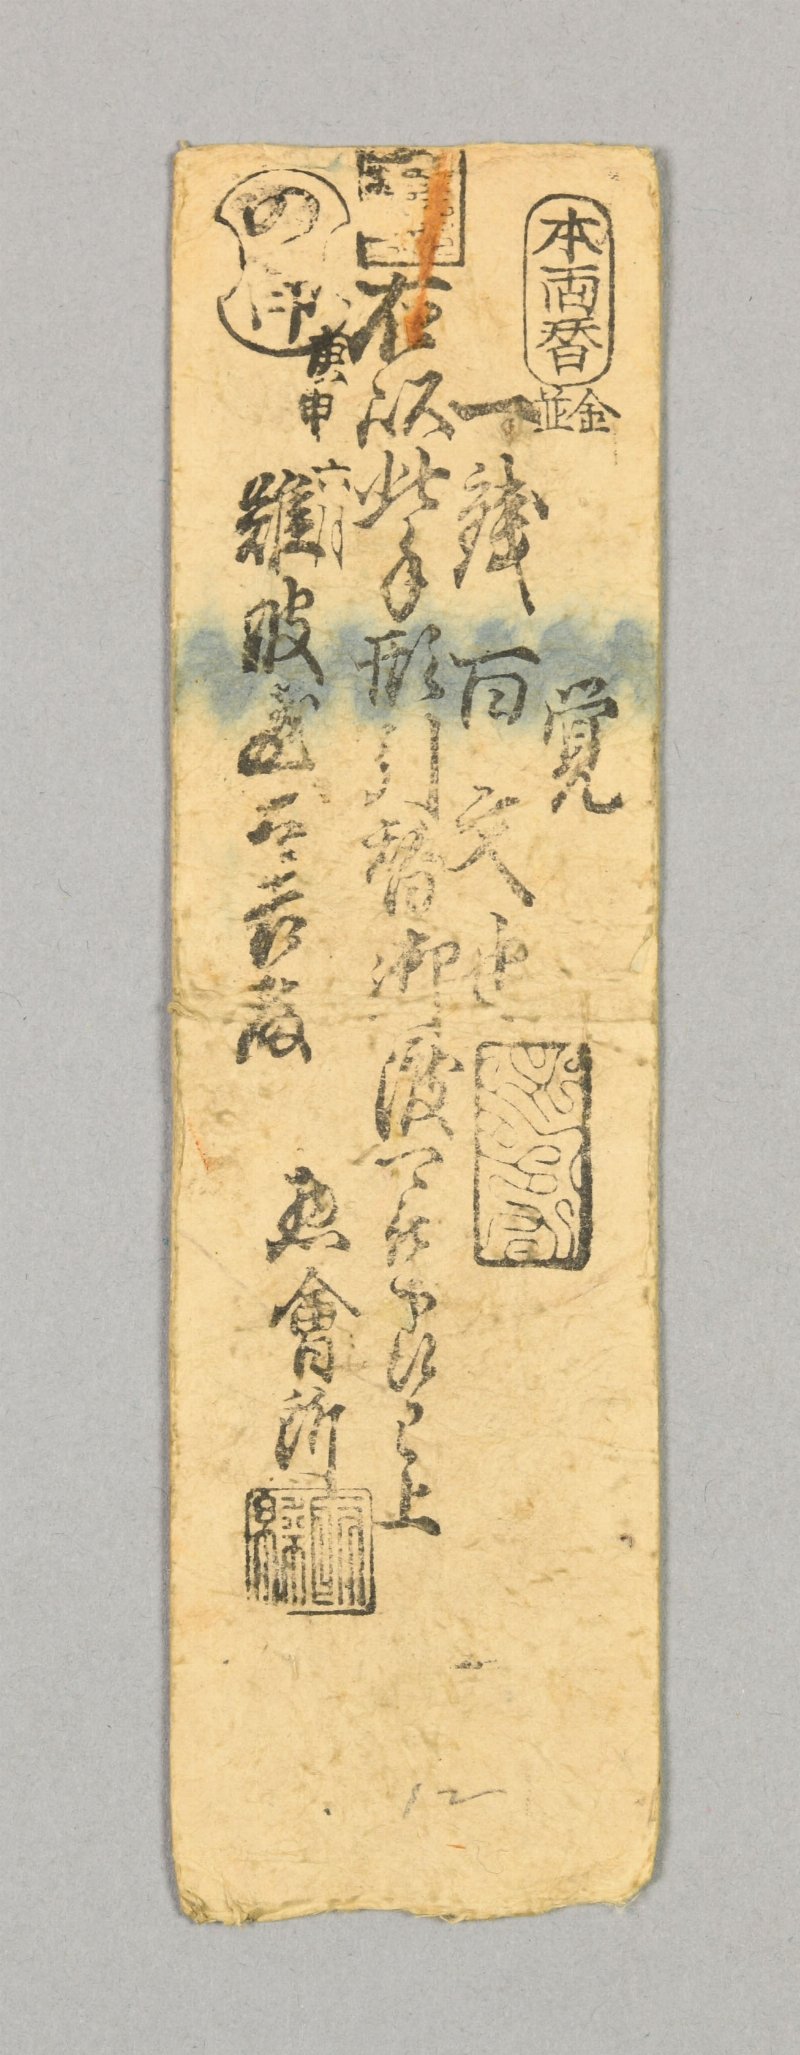 本両替
金並
覚
一銭百文也
右以此手形引替御渡可被下候已上
庚申
六月
の印
難波
惣會所
12